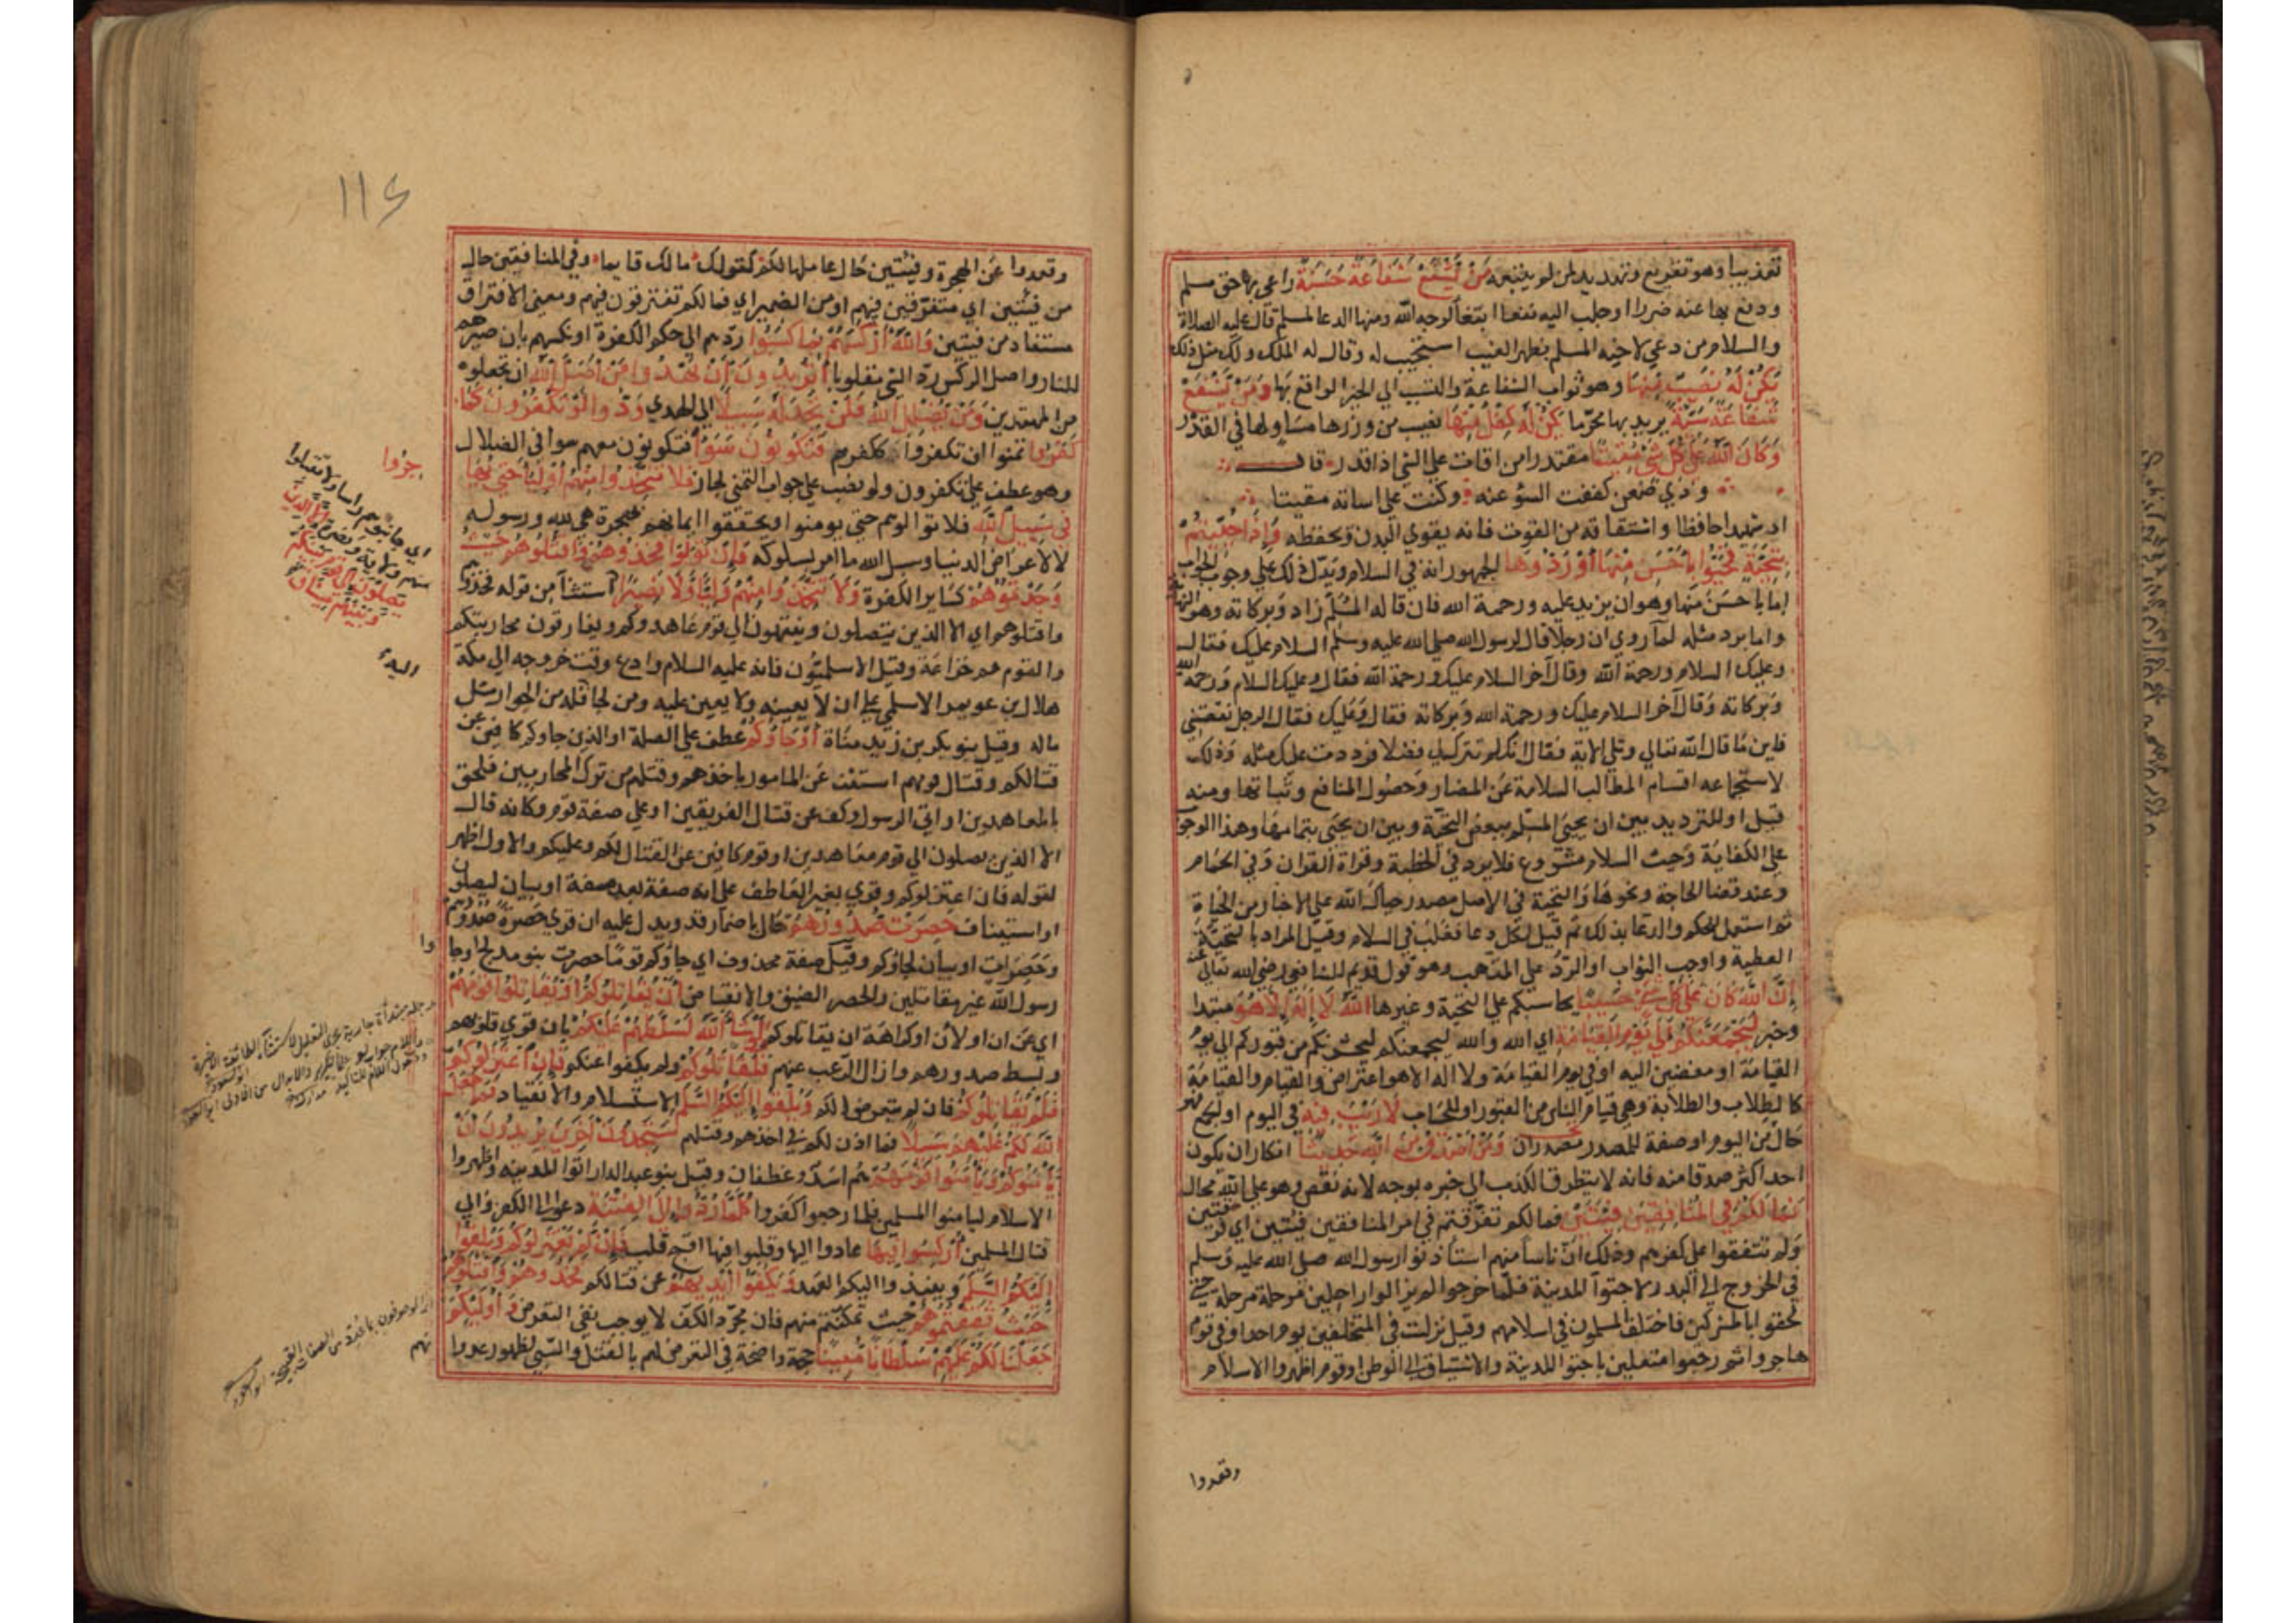 تعذيبا وهو تقريع وتهديد لمن لو يتبعه مَنْ يَشْفَعْ شَفَاعَةً حَسَنَةً راعى بها حق مسلم
ودفع بها عنه ضررا او جلب اليه نفعا ابتغا لوجه الله ومنها الدعا لمسلم قال عليه الصلاة
والسلام من دعى لاخيه المسلم بظهر الغيب استجيب له وقال له الملك ولك مثل ذلك
يَكُنْ لَهُ نَصِيبٌ مِنْهَا وهو ثواب الشفاعة والتسبب الي الخير الواقع بها وَمَنْ يَشْفَعْ
شَفَاعَةً سَيِّئَةً يريد بها محرما يَكُنْ لَهُ كِفْلٌ مِنْهَا نصيب من وزرها مساو لها في القدر
وَكَانَ اللَّهُ عَلَى كُلِّ شَيْءٍ مُقِيتًا مقتدرا من اقات على الشي اذا قدر قال
وذي ضغن كففت السؤ عنه وكنت على اساته مقيتا
او شهيدا حافظا واشتقاقه من القوت فانه يقوي البدن ويحفظه وَإِذَا حُيِّيتُمْ
بِتَحِيَّةٍ فَحَيُّوا بِأَحْسَنَ مِنْهَا أَوْ رُدُّوهَا الجمهور انه في السلام ويدل ذلك علي وجوب الجواب
اما باحسن منها وهو ان يزيد عليه ورحمة الله فان قاله المسلم زاد وبركاته وهو النهاية
واما برد مثله لما روي ان رجلا قال لرسول الله صلى الله عليه وسلم السلام عليك فقال
وعليك السلام ورحمة الله وقال آخر السلام عليك ورحمة الله فقال وعليك السلام ورحمة الله
وبركاته وقال آخر السلام عليك ورحمة الله وبركاته فقال وعليك فقال الرجل نقصتني
فاين ما قال الله تعالى وتلى الاية فقال انك لم تترك لي فضلا فرددت عليك مثله وذلك
لاستجماعه اقسام المطالب السلامة عن المضار وحصول المنافع وثباتها ومنه
قيل او للترديد بين ان يحيى المسلم ببعض التحية وبين ان يحيى بتمامها وهذا الوجوب
على الكفاية وحيث السلام مشروع فلا يرد في الخطبة وقراة القران وفي الحمام
وعند قضا الحاجة ونحوها والتحية في الاصل مصدر حياك الله على الاخبار من الحياة
ثم استعمل للحكم والدعا بذلك ثم قيل لكل دعا فغلب في السلام وقيل المراد بالتحية
العطية واوجب الثواب او الرد على المتهب وهو قول قديم للشافعي رضي الله تعالى عنه
إِنَّ اللَّهَ كَانَ عَلَى كُلِّ شَيْءٍ حَسِيبًا يحاسبكم على التحية وغيرها اللَّهُ لَا إِلَهَ إِلَّا هُوَ مبتدا
وخبر لَيَجْمَعَنَّكُمْ إِلَى يَوْمِ الْقِيَامَةِ اي الله والله ليجمعنكم ليحشرنكم من قبوركم الى يوم
القيامة او مفضين اليه او في يوم القيامة ولا اله الا هو اعتراض والقيام والقيامة
كالطلاب والطلابة وهي قيام الناس من القبور او للحساب لَا رَيْبَ فِيهِ في اليوم او الجمع فهو
حال من اليوم او صفة للمصدر وَمَنْ أَصْدَقُ مِنَ اللَّهِ حَدِيثًا انكار ان يكون
احد اكثر صدقا منه فانه لا يتطرق الكذب الى خبره بوجه لانه نقص وهو على الله محال
فَمَا لَكُمْ فِي الْمُنَافِقِينَ فِئَتَيْنِ فما لكم تفرقتم في امر المنافقين فئتين اي فرقتين
ولم تتفقوا على كفرهم وذلك ان ناسا منهم استاذنوا رسول الله صلى الله عليه وسلم
في الخروج الى البدو لاجتوا المدينة فلما خرجوا لم يزالوا راحلين مرحلة مرحلة حتى
لحقوا بالمشركين فاختلف المسلمون في اسلامهم وقيل نزلت في المتخلفين يوم احد او في قوم
هاجروا ثم رجعوا متعللين باجتوا المدينة والاشتياق الى الوطن او قوم اظهروا الاسلام
وقعدوا
١١٤
وقعدوا عن الهجرة وفئتين حال عاملها لكم كقولك ما لك قايما وفي المنافقين حال
من فئتين اي متفرقتين فيهم او من الضمير اي فما لكم تفترقون فيهم ومعنى الافتراق
مستفاد من فيتين وَاللَّهُ أَرْكَسَهُمْ بِمَا كَسَبُوا ردهم الى حكم الكفرة او نكسهم بان صيرهم
للنار واصل الركس رد الشي مقلوبا أَتُرِيدُونَ أَنْ تَهْدُوا مَنْ أَضَلَّ اللَّهُ ان تجعلوه
من المهتدين وَمَنْ يُضْلِلِ اللَّهُ فَلَنْ تَجِدَ لَهُ سَبِيلًا الى الهدى وَدُّوا لَوْ تَكْفُرُونَ كَمَا
كَفَرُوا تمنوا ان تكفروا ككفرهم فَتَكُونُونَ سَوَاءً فتكونون معهم سوا في الضلال
وهو عطف على تكفرون ولو نصب على جواب التمني لجاز فَلَا تَتَّخِذُوا مِنْهُمْ أَوْلِيَاءَ حَتَّى يُهَاجِرُوا
فِي سَبِيلِ اللَّهِ فلا توالوهم حتى يومنوا ويحققوا ايمانهم بهجرة هي لله ورسوله
لا لاغراض الدنيا وسبيل الله ما امر بسلوكه فَإِنْ تَوَلَّوْا فَخُذُوهُمْ وَاقْتُلُوهُمْ حَيْثُ
وَجَدْتُمُوهُمْ كساير الكفرة وَلَا تَتَّخِذُوا مِنْهُمْ وَلِيًّا وَلَا نَصِيرًا استثنا من قوله فخذوهم
واقتلوهم اي الا الذين يتصلون وينتهون الى قوم عاهدوكم ويفارقون محاربتكم
والقوم هم خزاعة وقيل الاسلميون فانه عليه السلام وادع وقت خروجه الى مكة
هلال بن عويمر الاسلمي على ان لا يعينه ولا يعين عليه ومن لجا اليه فله من الجوار مثل
ماله وقيل بنو بكر بن زيد مناة أَوْ جَاءُوكُمْ عطف على الصلة او الذين جاوكم كافين عن
قتالكم وقتال قومهم استثنى عن المامور باخذهم وقتلهم من ترك المحاربين فلحق
بالمعاهدين او اتى الرسول وكف عن قتال الفريقين او على صفة قوم وكانه قال
الا الذين يصلون الى قوم معاهدين او قوم كافين عن القتال لكم وعليكم والاول اظهر
لقوله فان اعتزلوكم وقري بغير العاطف على انه صفة بعد صفة او بيان ليصلون
او استيناف حَصِرَتْ صُدُورُهُمْ حال باضمار قد ويدل عليه ان قري حَصِرَةً صدورهم
وحصرات او بيان لجاؤكم وقيل صفة محذوف اي جاؤكم قوما حصرت بنو مدلج جاوا
رسول الله غير مقاتلين والحصر الضيق والانقباض أَنْ يُقَاتِلُوكُمْ أَوْ يُقَاتِلُوا قَوْمَهُمْ
اي عن ان او لان او كراهة ان يقاتلوكم وَلَوْ شَاءَ اللَّهُ لَسَلَّطَهُمْ عَلَيْكُمْ بان قوى قلوبهم
وبسط صدورهم وازال الرعب عنهم فَلَقَاتَلُوكُمْ ولم يكفوا عنكم فَإِنِ اعْتَزَلُوكُمْ
فَلَمْ يُقَاتِلُوكُمْ فان لم يتعرضوا لكم وَأَلْقَوْا إِلَيْكُمُ السَّلَمَ الاستسلام والانقياد فَمَا جَعَلَ
اللَّهُ لَكُمْ عَلَيْهِمْ سَبِيلًا فما اذن لكم في اخذهم وقتلهم سَتَجِدُونَ آخَرِينَ يُرِيدُونَ أَنْ
يَأْمَنُوكُمْ وَيَأْمَنُوا قَوْمَهُمْ هم اسد وغطفان وقيل بنو عبد الدار اتوا المدينة واظهروا
الاسلام ليامنوا المسلمين فلما رجعوا كفروا كُلَّمَا رُدُّوا إِلَى الْفِتْنَةِ دعوا الى الكفر والى
قتال المسلمين أُرْكِسُوا فِيهَا عادوا اليها وقلبوا فيها اقبح قلب فَإِنْ لَمْ يَعْتَزِلُوكُمْ وَيُلْقُوا
إِلَيْكُمُ السَّلَمَ وينبذوا اليكم العهد وَيَكُفُّوا أَيْدِيَهُمْ عن قتالكم فَخُذُوهُمْ وَاقْتُلُوهُمْ
حَيْثُ ثَقِفْتُمُوهُمْ حيث تمكنتم منهم فان مجرد الكف لا يوجب نفي التعرض وَأُولَئِكُمْ
جَعَلْنَا لَكُمْ عَلَيْهِمْ سُلْطَانًا مُبِينًا حجة واضحة في التعرض لهم بالقتل والسبي لظهور عداو
جروا
اي جانبوهم راسا ولا تقبلوا
منهم ولاية ونصرة إلا الذين
يصلون الى قوم بينكم
وبينهم ميثاق
اليه
وا
تهم